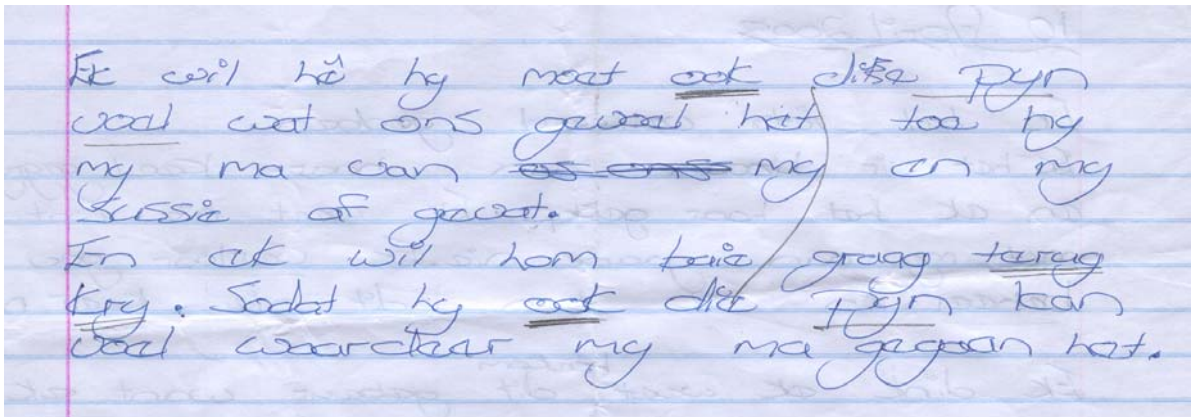 Ek wil hê hy moet ook disse pyn
voel wat ons gevoel het toe hy
my ma van os ons my en my
Sussie af gevat.
En ek wil hom baie graag terug
kry. Sodat hy ook die pyn kan
voel waardeur my ma gegaan het.